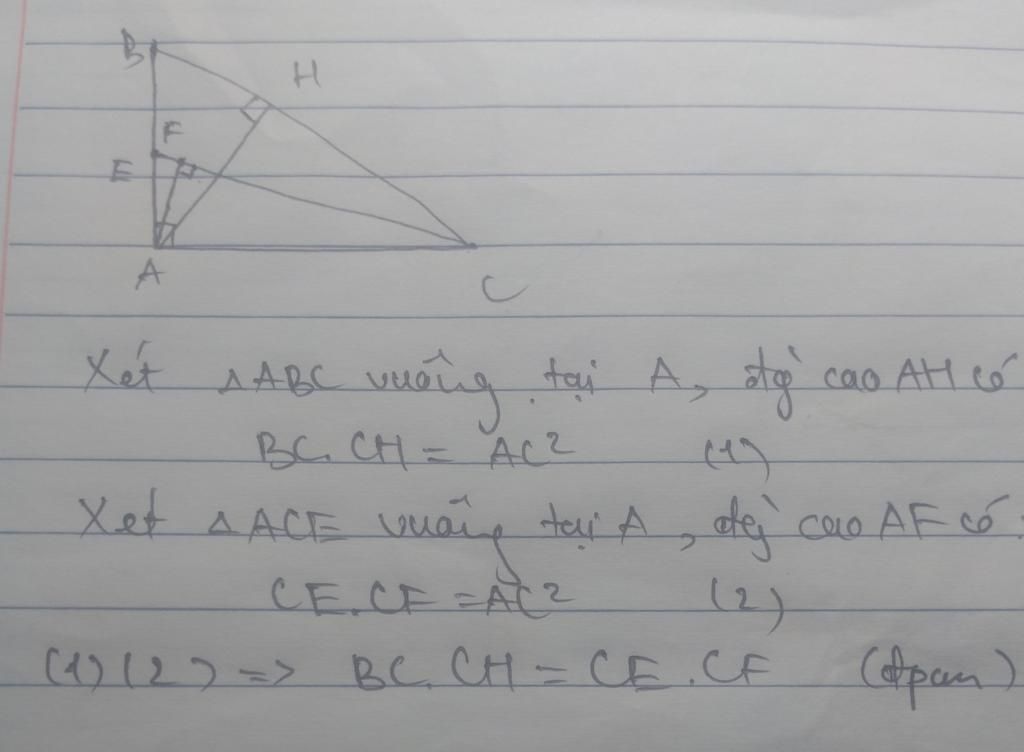 B
H
F
E
A
C
Xét △ABC vuông tại A, đg cao AH có
BC.CH = AC² (1)
Xét △ACE vuông tại A, đg cao AF có:
CE.CF = AC² (2)
(1)(2) => BC.CH = CE.CF (đpcm)